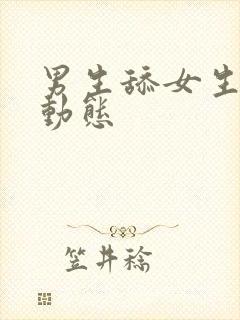 男生舔女生
動態
笠井稔